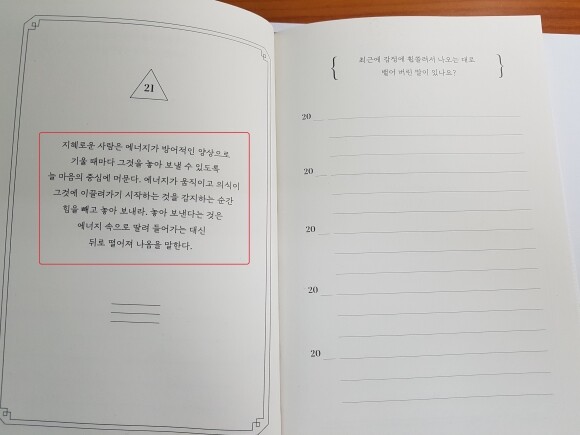 21
지혜로운 사람은 에너지가 방어적인 양상으로
기울 때마다 그것을 놓아 보낼 수 있도록
늘 마음의 중심에 머문다. 에너지가 움직이고 의식이
그것에 이끌려가기 시작하는 것을 감지하는 순간
힘을 빼고 놓아 보내라. 놓아 보낸다는 것은
에너지 속으로 딸려 들어가는 대신
뒤로 떨어져 나옴을 말한다.
최근에 감정에 휩쓸려서 나오는 대로
뱉어 버린 말이 있나요?
20
20
20
20
20